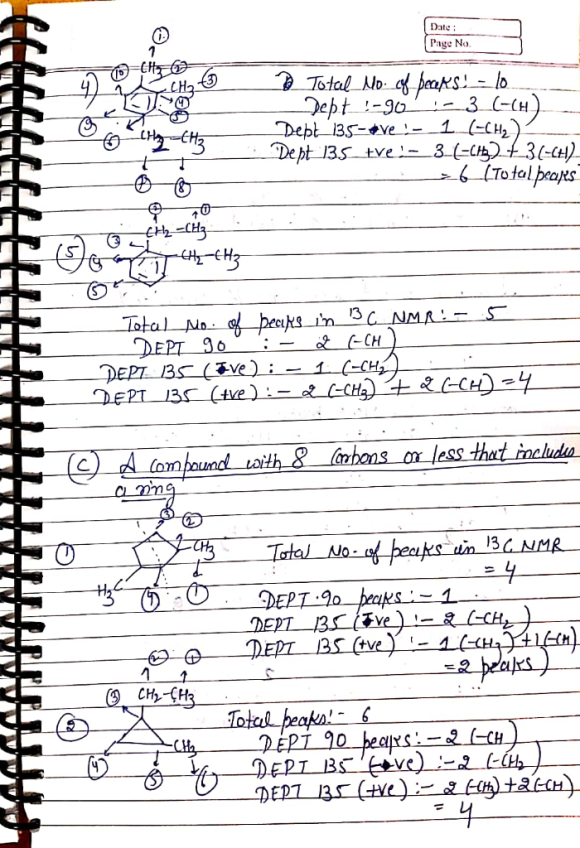 Date :
Page No.
①
4) ⑩ CH3 ② CH3 ③
④
⑤
⑨ ⑥ CH2 - CH3
⑦ ⑧
Total No. of peaks: - 10
Dept :-90 :- 3 (-CH)
Dept 135 -ve :- 1 (-CH2)
Dept 135 +ve :- 3 (-CH3) + 3 (-CH)
= 6 (Total peaks
② ①
CH2 - CH3
⑤ ③ CH2 - CH3
④
⑤
Total No. of peaks in 13C NMR: - 5
DEPT 90 : - 2 (-CH)
DEPT 135 (-ve) : - 1 (-CH2)
DEPT 135 (+ve) : - 2 (-CH3) + 2 (-CH) = 4
(C) A compound with 8 Carbons or less that includes
a ring
③ ②
① CH3
H3C ④ ①
Total No. of peaks in 13C NMR
= 4
DEPT-90 peaks : - 1
DEPT 135 (-ve) :- 2 (-CH2)
DEPT 135 (+ve) :- 1 (-CH3) + 1 (-CH)
= 2 peaks)
② ①
③ CH2 - CH3
② CH3
④ ⑤ ⑥
Total peaks: - 6
DEPT 90 peaks : - 2 (-CH)
DEPT 135 (-ve) :- 2 (-CH2)
DEPT 135 (+ve) :- 2 (-CH3) + 2 (-CH)
= 4